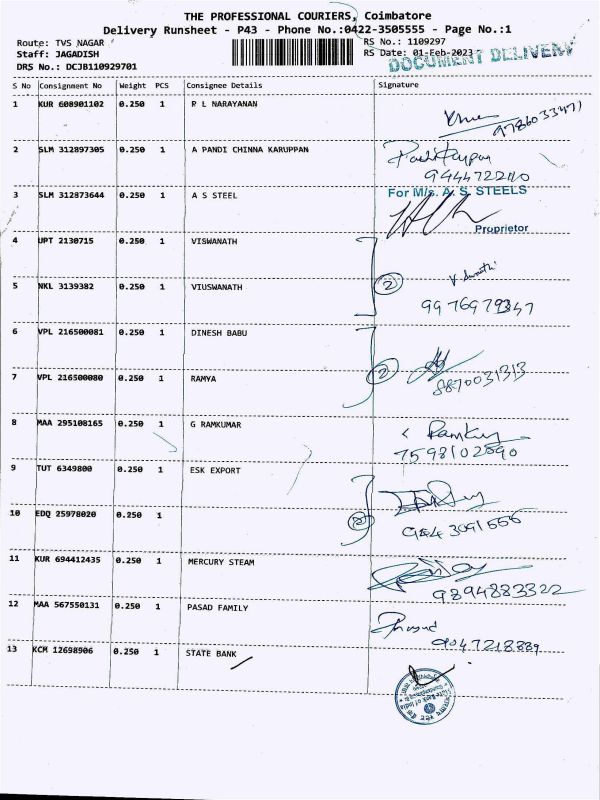 THE PROFESSIONAL COURIERS, Coimbatore
Delivery Runsheet - P43 - Phone No.:0422-3505555 - Page No.:1
Route: TVS NAGAR RS No.: 1109297
Staff: JAGADISH RS Date: 01-Feb-2023
DOCUMENT DELIVERY
DRS No.: DCJB110929701
S No Consignment No Weight PCS Consignee Details Signature
1 KUR 608901102 0.250 1 R L NARAYANAN
9786033471
2 SLM 312897305 0.250 1 A PANDI CHINNA KARUPPAN
3 SLM 312873644 0.250 1 A S STEEL
For M/s. A. S. STEELS
Proprietor
4 UPT 2130715 0.250 1 VISWANATH
5 NKL 3139382 0.250 1 VIUSWANATH
2
9976979347
6 VPL 216500081 0.250 1 DINESH BABU
7 VPL 216500080 0.250 1 RAMYA
2
8870031313
8 MAA 295108165 0.250 1 G RAMKUMAR
Ramky
7598102090
9 TUT 6349800 0.250 1 ESK EXPORT
10 EDQ 25978020 0.250 1
11 KUR 694412435 0.250 1 MERCURY STEAM
9894883322
12 MAA 567550131 0.250 1 PASAD FAMILY
Prasad
9047218889
13 KCM 12698906 0.250 1 STATE BANK